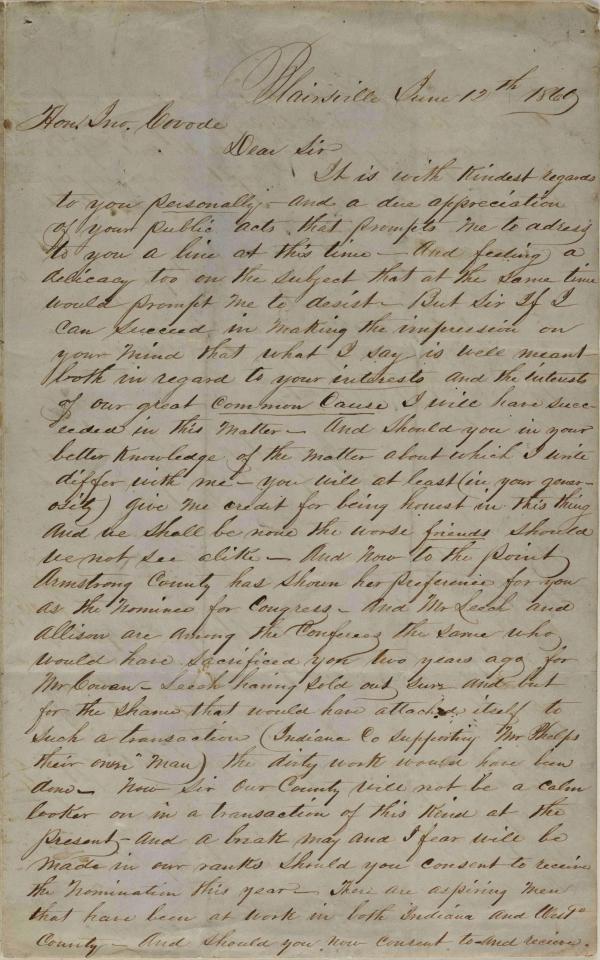 Blairsville June 12th 1860
Hon. Jno. Covode
Dear Sir
It is with kindest regards
to you personally - and a due appreciation
of your public acts that prompts me to adress
to you a line at this time - And feeling a
delicacy too on the subject that at the same time
would prompt me to desist - But Sir If I
can succeed in making the impression on
your mind that what I say is well meant
both in regard to your interests and the interests
of our great Common Cause I will have suc-
ceeded in this matter - And should you in your
better knowledge of the matter about which I write
differ with me - you will at least (in your gener-
osity) give me credit for being honest in this thing
And we shall be none the worse friends should
we not see alike - And now to the point
Armstrong County has shown her preference for you
as the nominee for Congress - And Mr Leech and
Allison are among the Conferees the same who
would have sacrificed you two years ago for
Mr Cowan - Leech having sold out sure and but
for the shame that would have attached itself to
such a transaction (Indiana Co supporting Mr Phelps
their own "man) the dirty work would have been
done - Now Sir Our County will not be a calm
looker on in a transaction of this kind at the
present - and a break may and I fear will be
made in our ranks should you consent to receive
the nomination this year - There are aspiring men
that have been at work in both Indiana and West
County - And should you now consent to and recieve